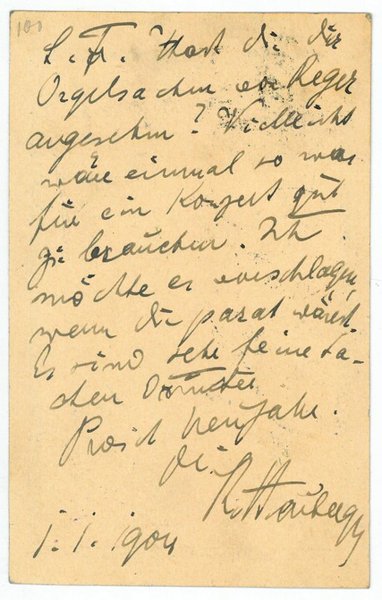 101
L. F. Hast du dir
Orgelsachen von Reger
angesehen? Vielleicht
wäre einmal so was
für ein Konzert gut
zu brauchen. Ich
möchte es vorschlagen,
wenn du parat wärest.
Es sind sehr feine Sa-
chen darunter.
Prosit Neujahr.
Dein
R.
1. 1. 1904